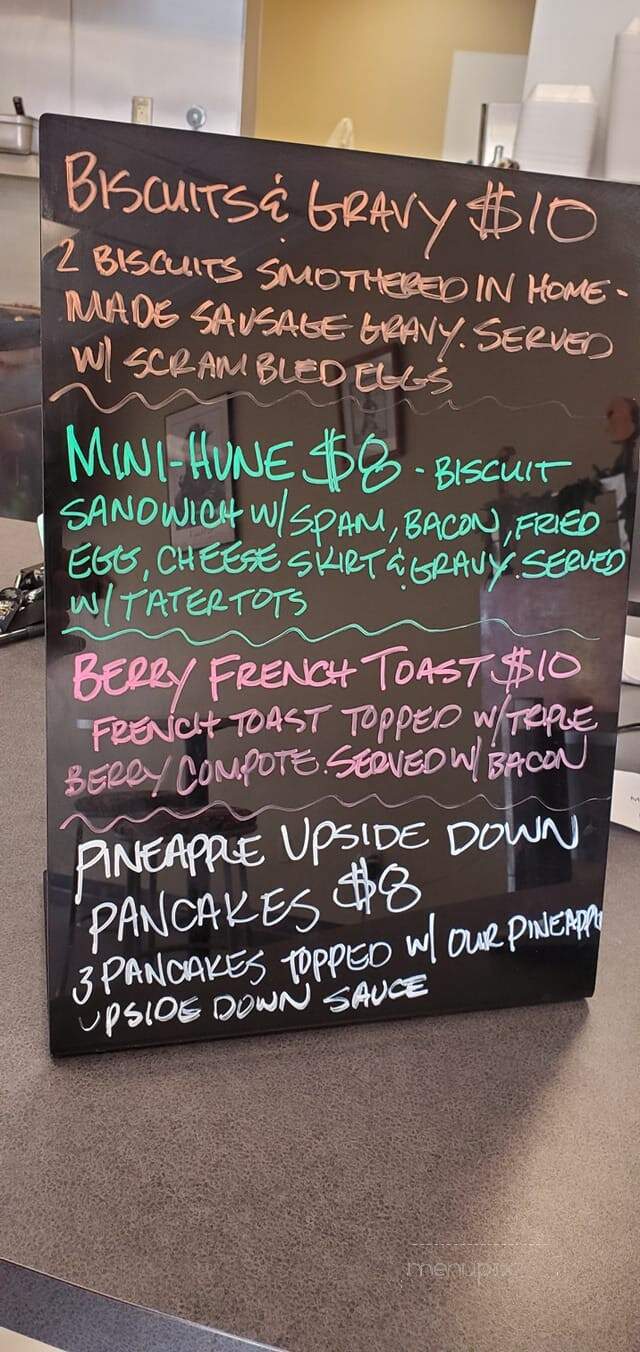 BISCUITS & GRAVY $10
2 BISCUITS SMOTHERED IN HOME-
MADE SAUSAGE GRAVY. SERVED
W/ SCRAMBLED EGGS
MINI-HUNE $8 - BISCUIT
SANDWICH W/ SPAM, BACON, FRIED
EGG, CHEESE SKIRT & GRAVY. SERVED
W/ TATERTOTS
BERRY FRENCH TOAST $10
FRENCH TOAST TOPPED W/ TRIPLE
BERRY COMPOTE. SERVED W/ BACON
PINEAPPLE UPSIDE DOWN
PANCAKES $8
3 PANCAKES TOPPED W/ OUR PINEAPPLE
UPSIDE DOWN SAUCE
menupix